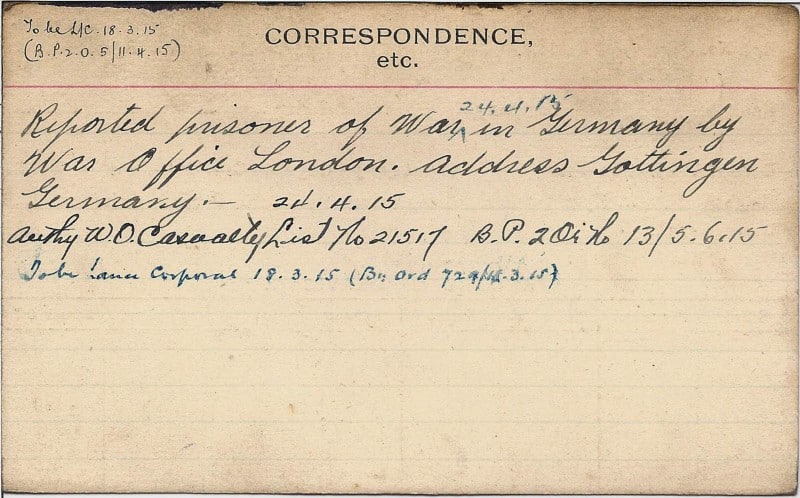 To be L/C. 18.3.15
(B.P.2.O. 5/11.4.15)
CORRESPONDENCE,
etc.
24.4.15
Reported prisoner of War in Germany by
War Office London. Address Gottingen
Germany.— 24.4.15
Authy W.O. Casualty List No 21517 B.P. 2 13/5.6.15
To be Lance Corporal 18.3.15 (Bn Ord 3.15)